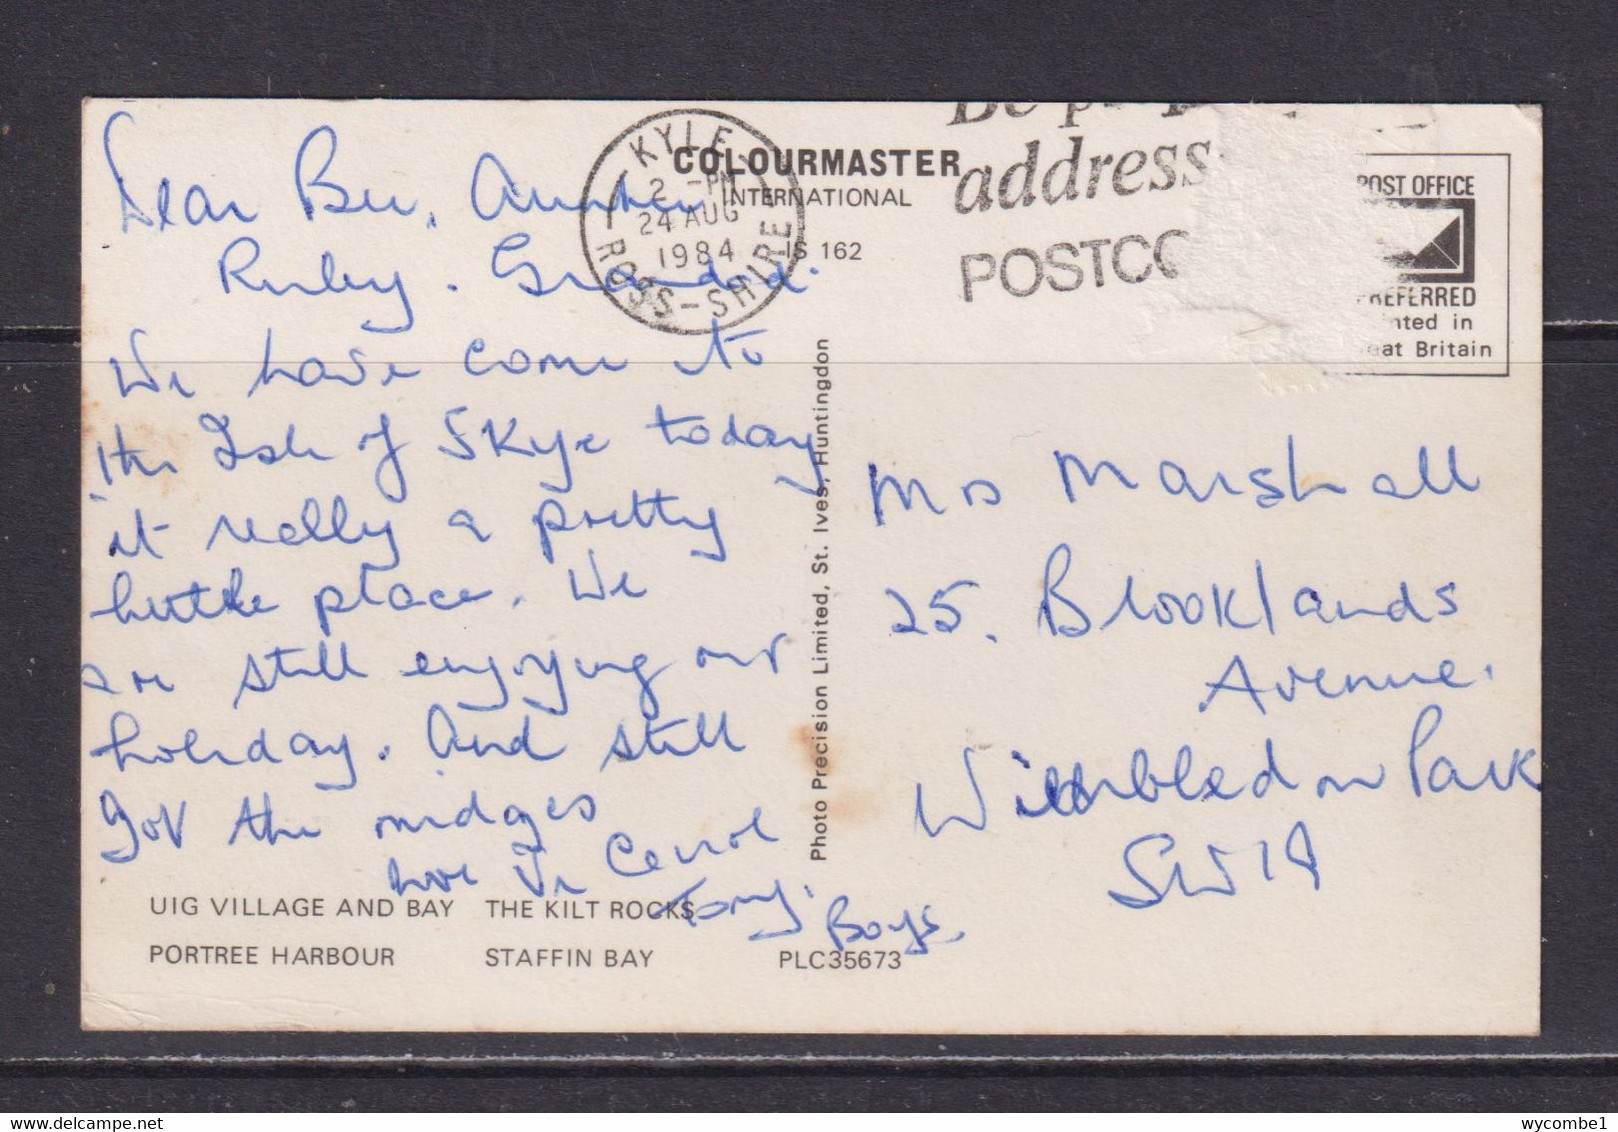 Dear Bee, Auntie
Ruby. Grandad.
We have come to
the Isle of Skye today
it really a pretty
little place. We
are still enjoying our
holiday. And still
got the midges
love Carol
Tony. Boys.
KYLE
2 -PM
24 AUG
1984
ROSS-SHIRE
COLOURMASTER
INTERNATIONAL
IS 162
address
POSTCO
POST OFFICE
PREFERRED
nted in
eat Britain
Photo Precision Limited, St. Ives, Huntingdon
Mrs Marshall
25. Brooklands
Avenue.
Wimbledon Park
SW19
UIG VILLAGE AND BAY THE KILT ROCKS
PORTREE HARBOUR STAFFIN BAY PLC35673
wycombe1